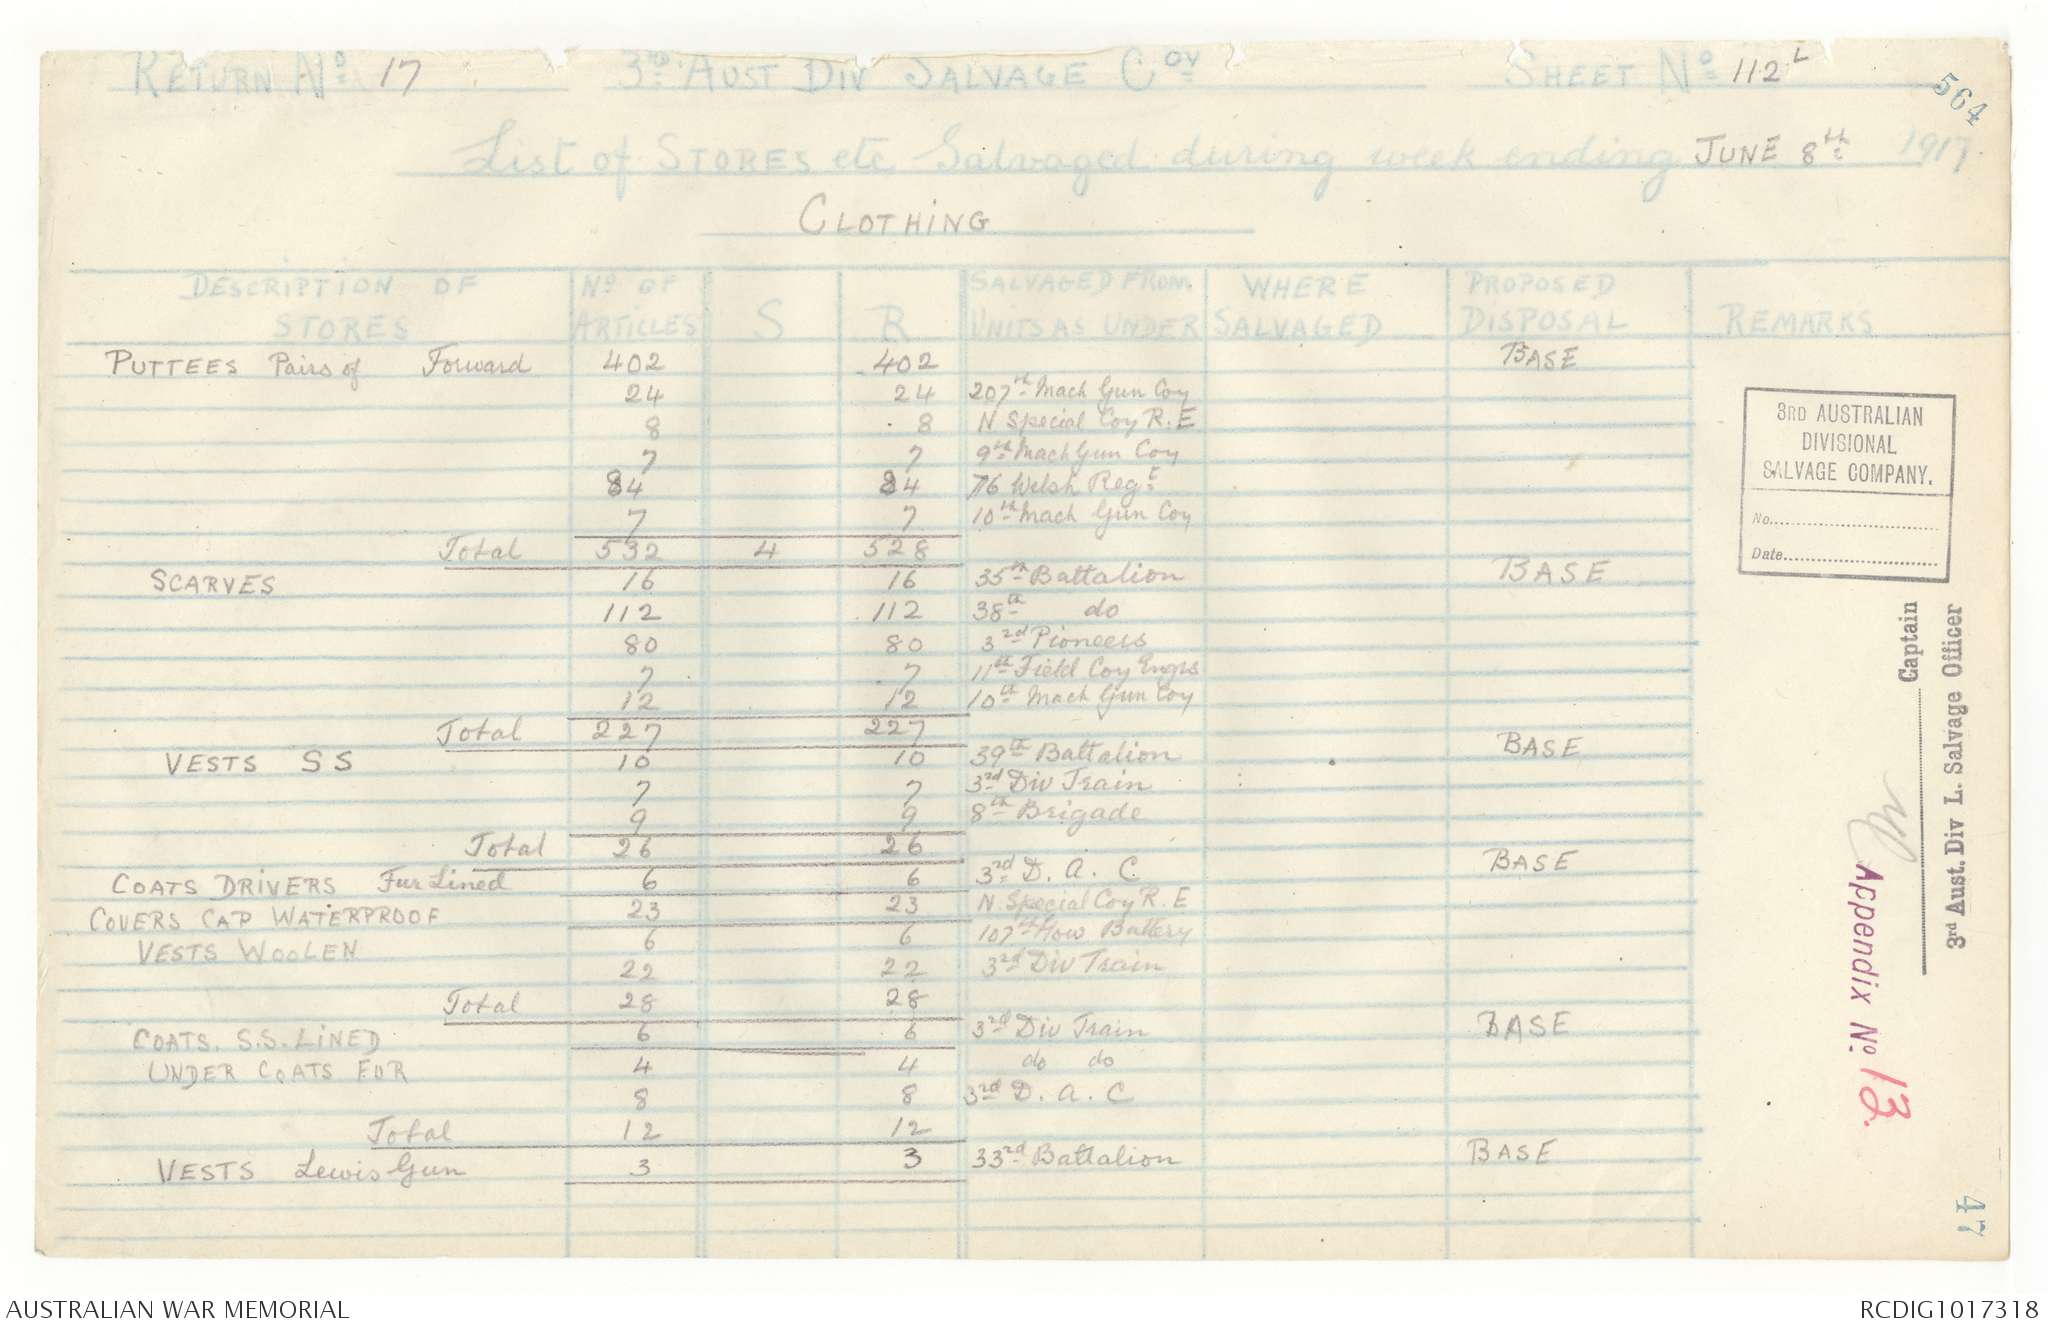 RETURN No 17 3RD AUST DIV SALVAGE COY SHEET No 112 L
564
List of STORES etc Salvaged during week ending JUNE 8th 1917.
CLOTHING
DESCRIPTION OF STORES No OF ARTICLES S R SALVAGED FROM UNITS AS UNDER WHERE SALVAGED PROPOSED DISPOSAL REMARKS
PUTTEES Pairs of Forward 402 402 BASE
24 24 207th Mach Gun Coy
8 8 N Special Coy R.E
7 7 9th Mach Gun Coy
84 84 76 Welsh Regt
7 7 10th Mach Gun Coy
Total 532 4 528
SCARVES 16 16 35th Battalion BASE
112 112 38th do
80 80 3rd Pioneers
7 7 11th Field Coy Engrs
12 12 10th Mach Gun Coy
Total 227 227
VESTS S S 10 10 39th Battalion BASE
7 7 3rd Div Train
9 9 8th Brigade
Total 26 26
COATS DRIVERS Fur Lined 6 6 3rd D. A. C BASE
COVERS CAP WATERPROOF 23 23 N. Special Coy R.E
VESTS WOOLEN 6 6 107th How Battery
22 22 3rd Div Train
Total 28 28
COATS. S.S. LINED 6 6 3rd Div Train BASE
UNDER COATS FUR 4 4 do do
8 8 3rd D. A. C
Total 12 12
VESTS Lewis Gun 3 3 33rd Battalion BASE
3RD AUSTRALIAN
DIVISIONAL
SALVAGE COMPANY.
No.
Date
Captain
3rd Aust. Div L. Salvage Officer
Appendix No. 13.
47
AUSTRALIAN WAR MEMORIAL RCDIG1017318